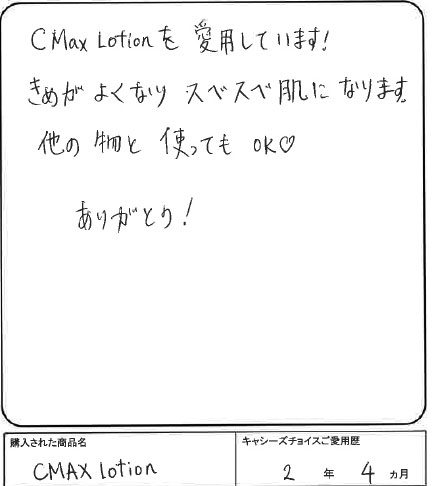 CMax Lotionを 愛用しています!
きめが よくなり スベスベ肌に なります
他の 物と 使っても OK♡
ありがとう!
購入された商品名
キャシーズチョイスご愛用歴
CMAX Lotion
2 年 4 ヵ月